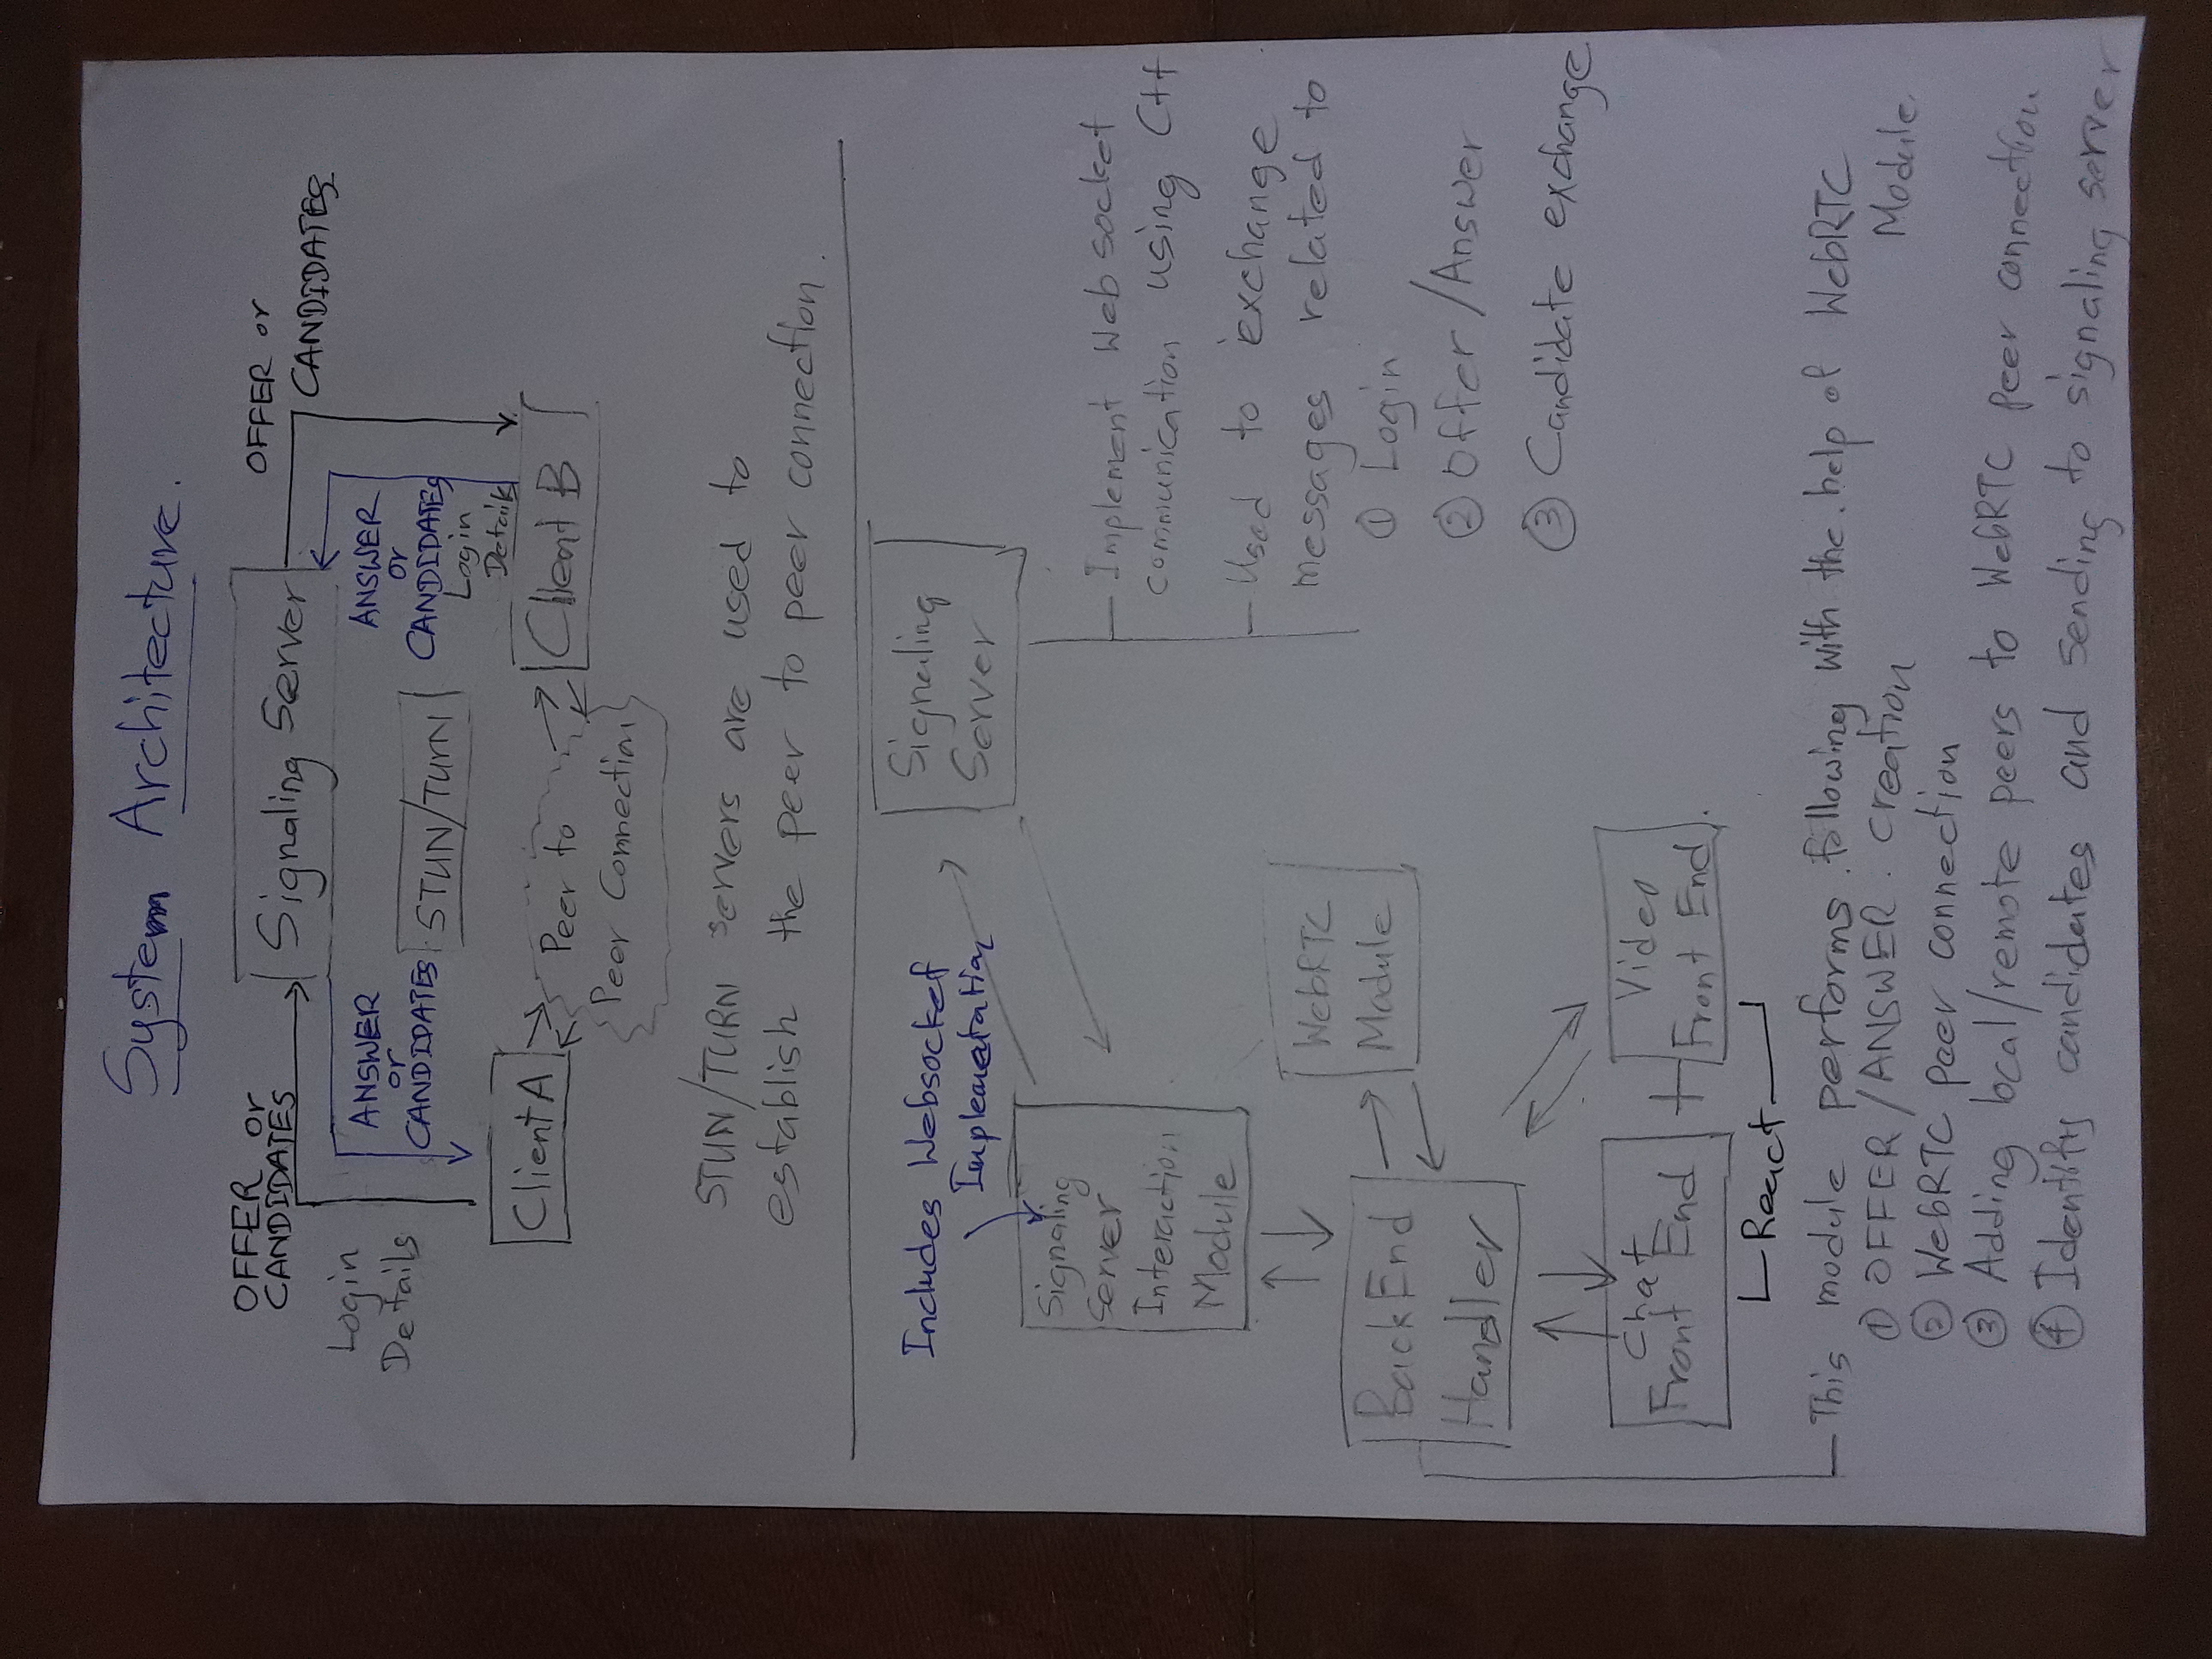 System Architecture.
OFFER or
CANDIDATES
Signaling Server
OFFER or
CANDIDATES
Login
Details
ANSWER
or
CANDIDATES
STUN/TURN
ANSWER
or
CANDIDATES
Login
Details
Client A
Peer to
Peer Connection
Client B
STUN/TURN servers are used to
establish the peer to peer connection.
Includes Websocket
Implemetation
Signaling
Server
Signaling
Server
Interaction
Module
Implement Web socket
communication using C++
Used to exchange
messages related to
① Login
② Offer/Answer
③ Candidate exchange
WebRTC
Module
BackEnd
Handler
Chat
Front End
+
Video
Front End.
React
This module performs following with the help of WebRTC
Module.
① OFFER/ANSWER. creation
② WebRTC peer connection
③ Adding local/remote peers to WebRTC peer connection
④ Identify candidates and sending to signaling server